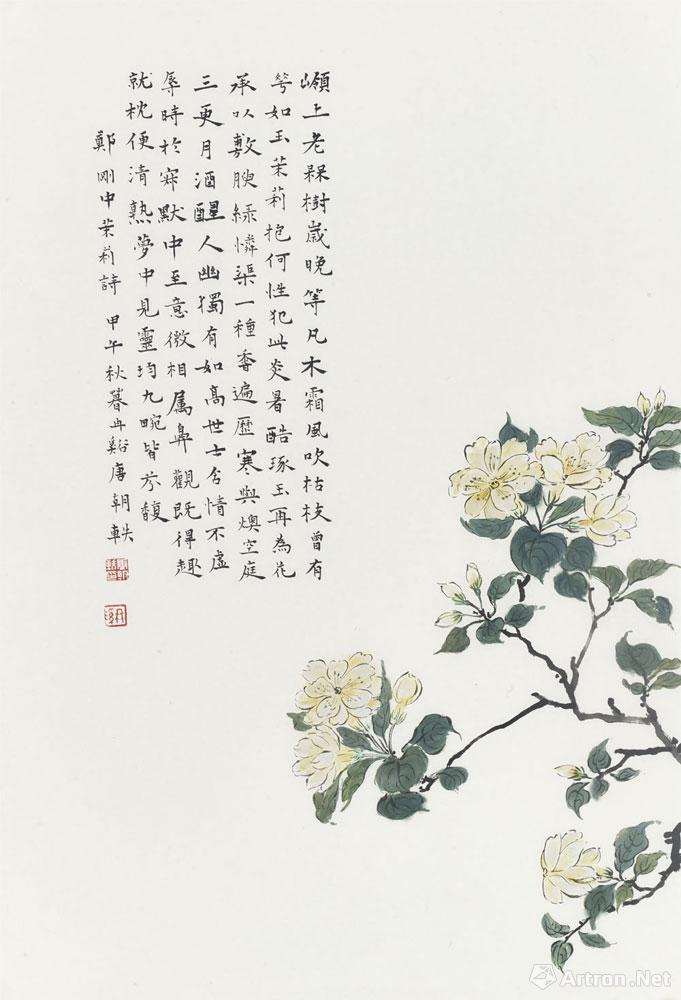 嶺上老槑樹歲晚等凡木霜風吹枯枝曾有
萼如玉茉莉抱何性犯此炎暑酷琢玉再為花
承以敷腴綠憐渠一種香遍歷寒與燠空庭
三更月酒醒人幽獨有如高世士含情不虛
辱時於寂默中至意微相属鼻觀既得趣
就枕便清熟夢中見靈均九畹皆芬馥
鄭剛中茉莉詩 甲午秋暮丹谿唐朝軼
Artron.Net